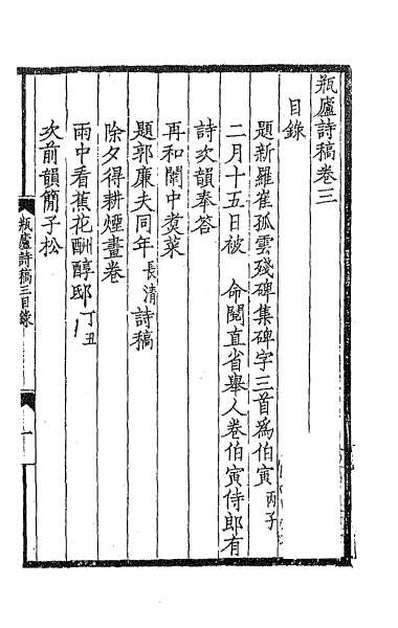 瓶廬詩稿卷三
目錄
題新羅崔孤雲殘碑集碑字三首爲伯寅丙子
二月十五日被 命閱直省舉人卷伯寅侍郎有
詩次韻奉答
再和闈中煑菜
題郭廉夫同年長清詩稿
除夕得耕煙畫卷
雨中看蕉花酬醇邸丁丑
次前韻簡子松
瓶廬詩稿三目錄
一